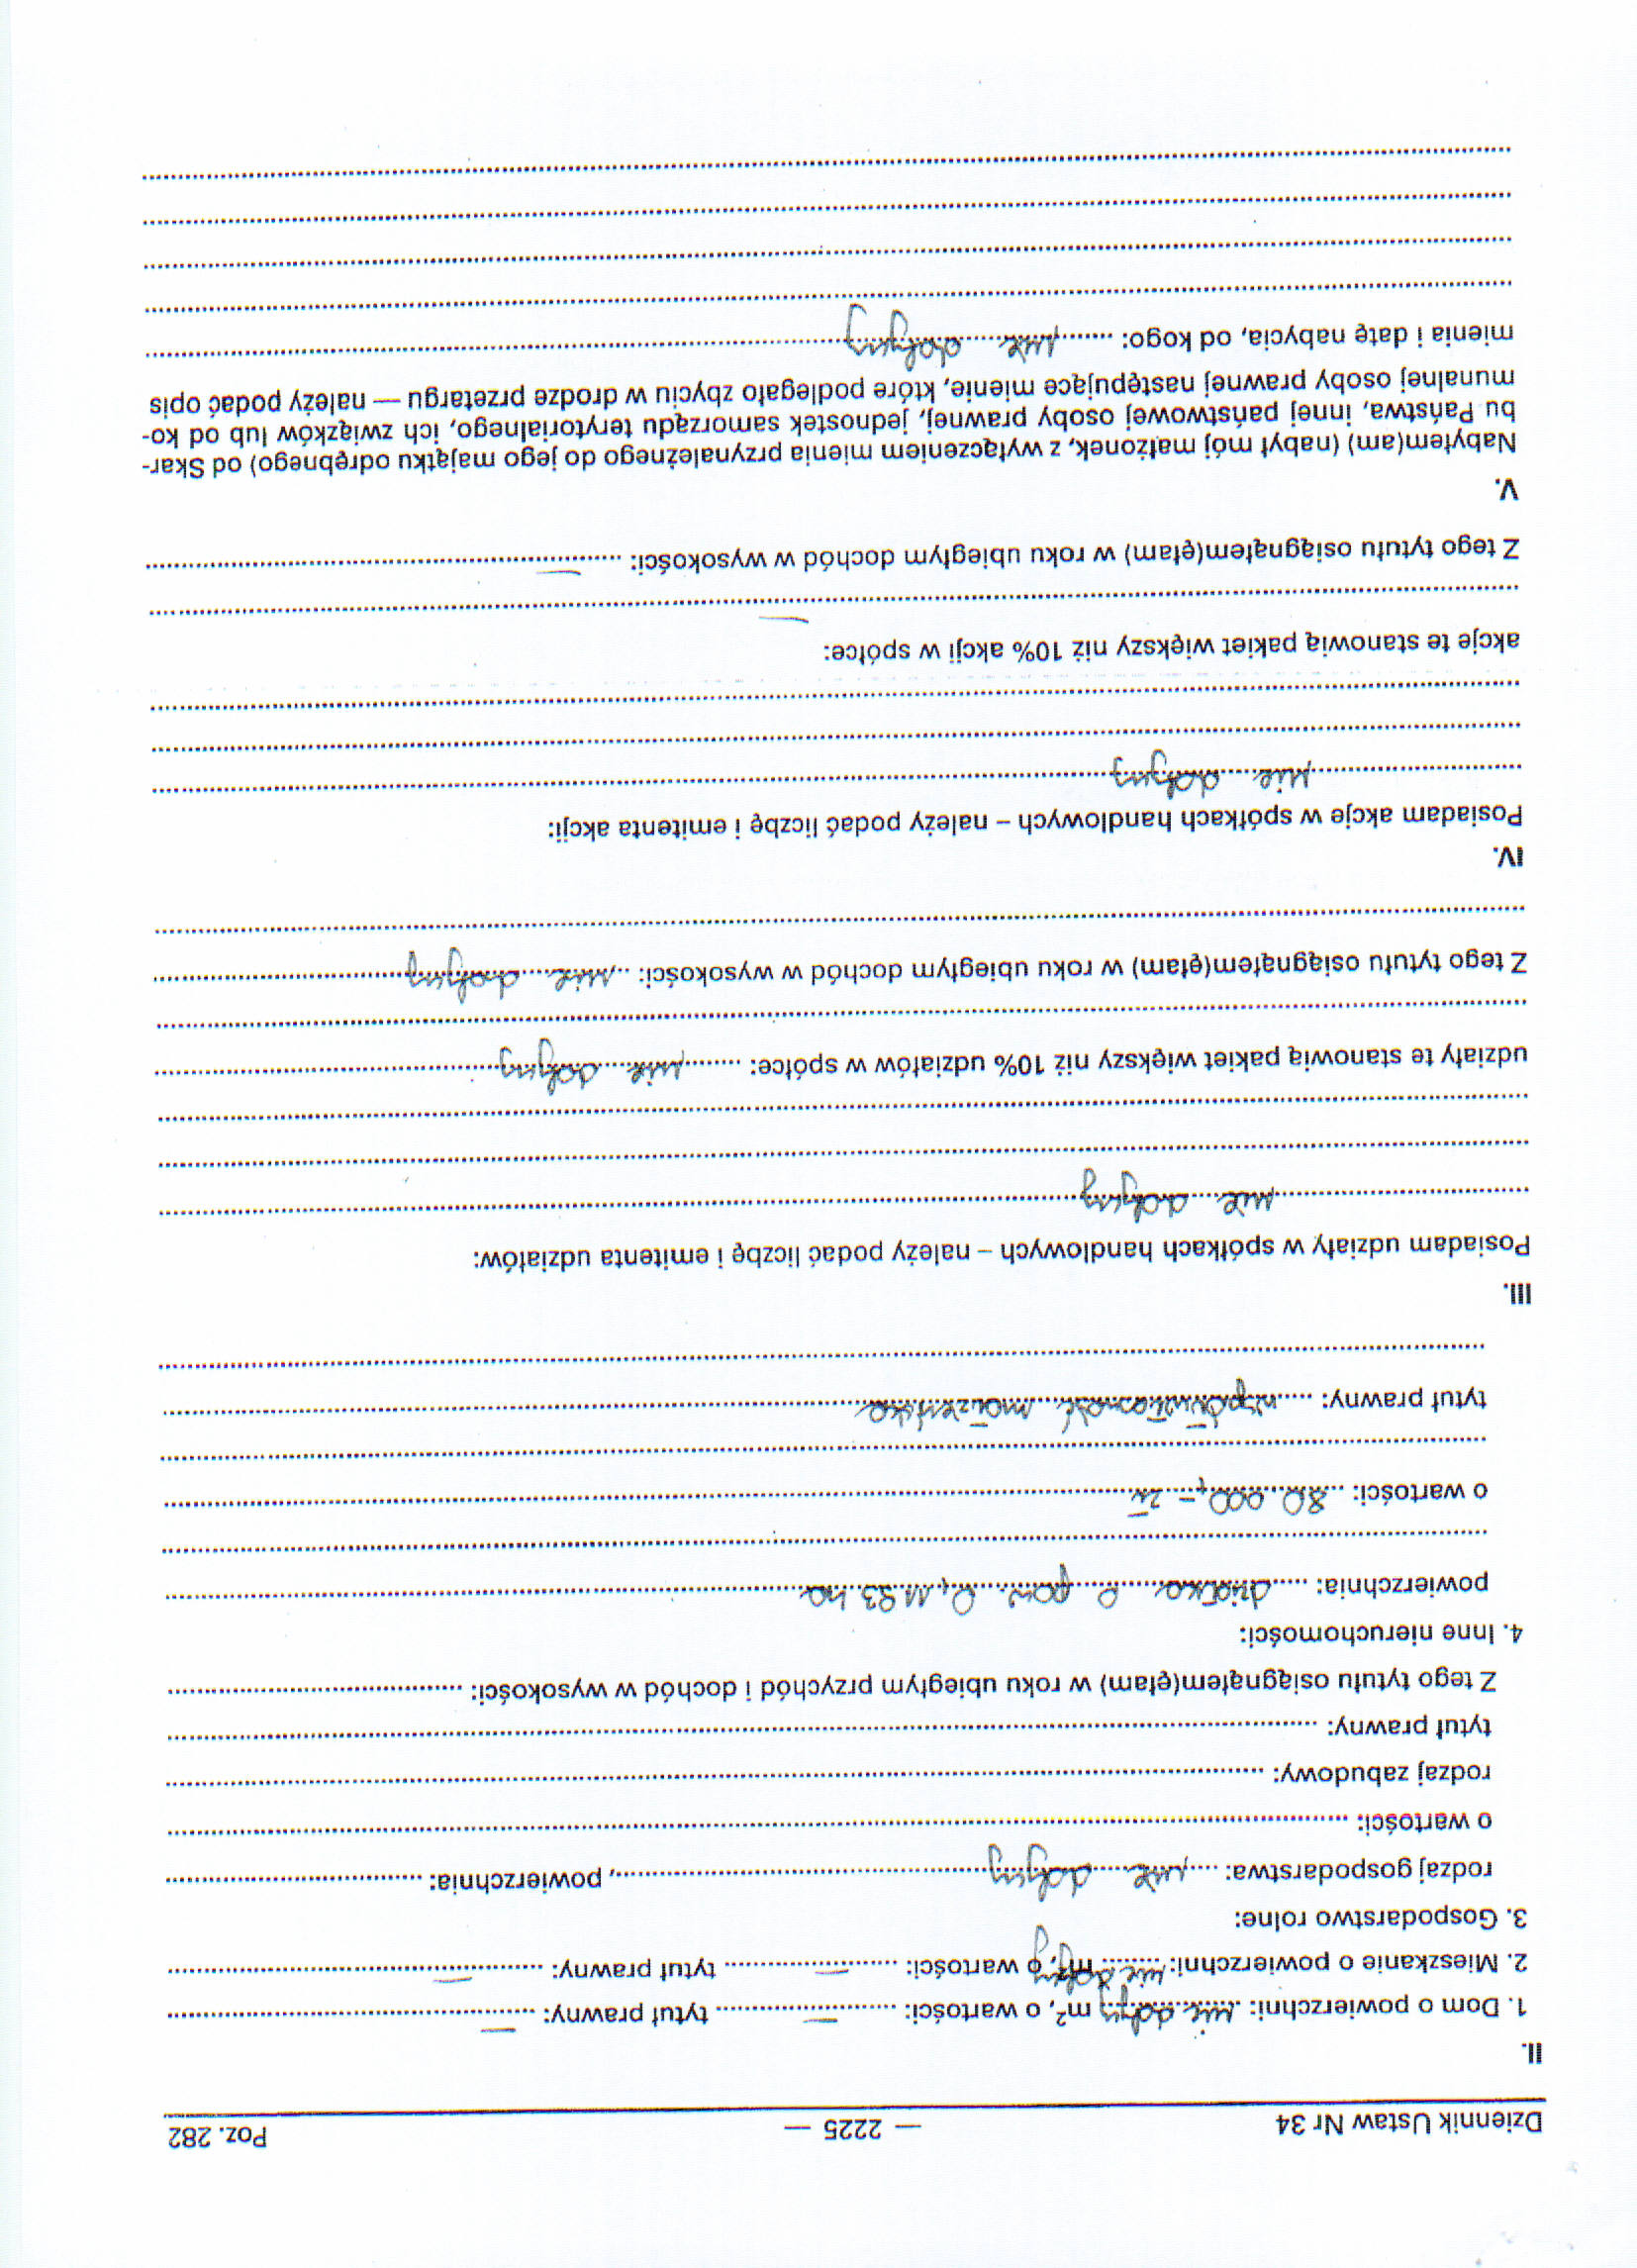 Dziennik Ustaw Nr 34 — 2225 — Poz. 282
II.
1. Dom o powierzchni: nie dotyczy m², o wartości: — tytuł prawny: —
2. Mieszkanie o powierzchni: nie dotyczy m², o wartości: — tytuł prawny: —
3. Gospodarstwo rolne:
rodzaj gospodarstwa: nie dotyczy, powierzchnia:
o wartości:
rodzaj zabudowy:
tytuł prawny:
Z tego tytułu osiągnąłem(ęłam) w roku ubiegłym przychód i dochód w wysokości:
4. Inne nieruchomości:
powierzchnia: działka o pow. 0,1193 ha
o wartości: 80 000,- zł
tytuł prawny: współwłasność małżeńska
III.
Posiadam udziały w spółkach handlowych – należy podać liczbę i emitenta udziałów:
nie dotyczy
udziały te stanowią pakiet większy niż 10% udziałów w spółce: nie dotyczy
Z tego tytułu osiągnąłem(ęłam) w roku ubiegłym dochód w wysokości: nie dotyczy
IV.
Posiadam akcje w spółkach handlowych – należy podać liczbę i emitenta akcji:
nie dotyczy
akcje te stanowią pakiet większy niż 10% akcji w spółce:
—
Z tego tytułu osiągnąłem(ęłam) w roku ubiegłym dochód w wysokości: —
V.
Nabyłem(am) (nabył mój małżonek, z wyłączeniem mienia przynależnego do jego majątku odrębnego) od Skar-
bu Państwa, innej państwowej osoby prawnej, jednostek samorządu terytorialnego, ich związków lub od ko-
munalnej osoby prawnej następujące mienie, które podlegało zbyciu w drodze przetargu — należy podać opis
mienia i datę nabycia, od kogo: nie dotyczy